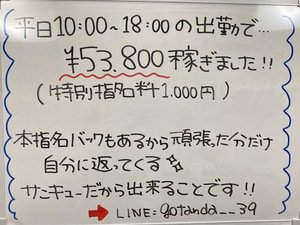 平日10:00~18:00の出勤で…
¥53.800稼ぎました!!
(特別指名料1.000円)
本指名バックもあるから頑張った分だけ
自分に返ってくる
サンキューだから出来ることです!!
LINE:gotanda__39